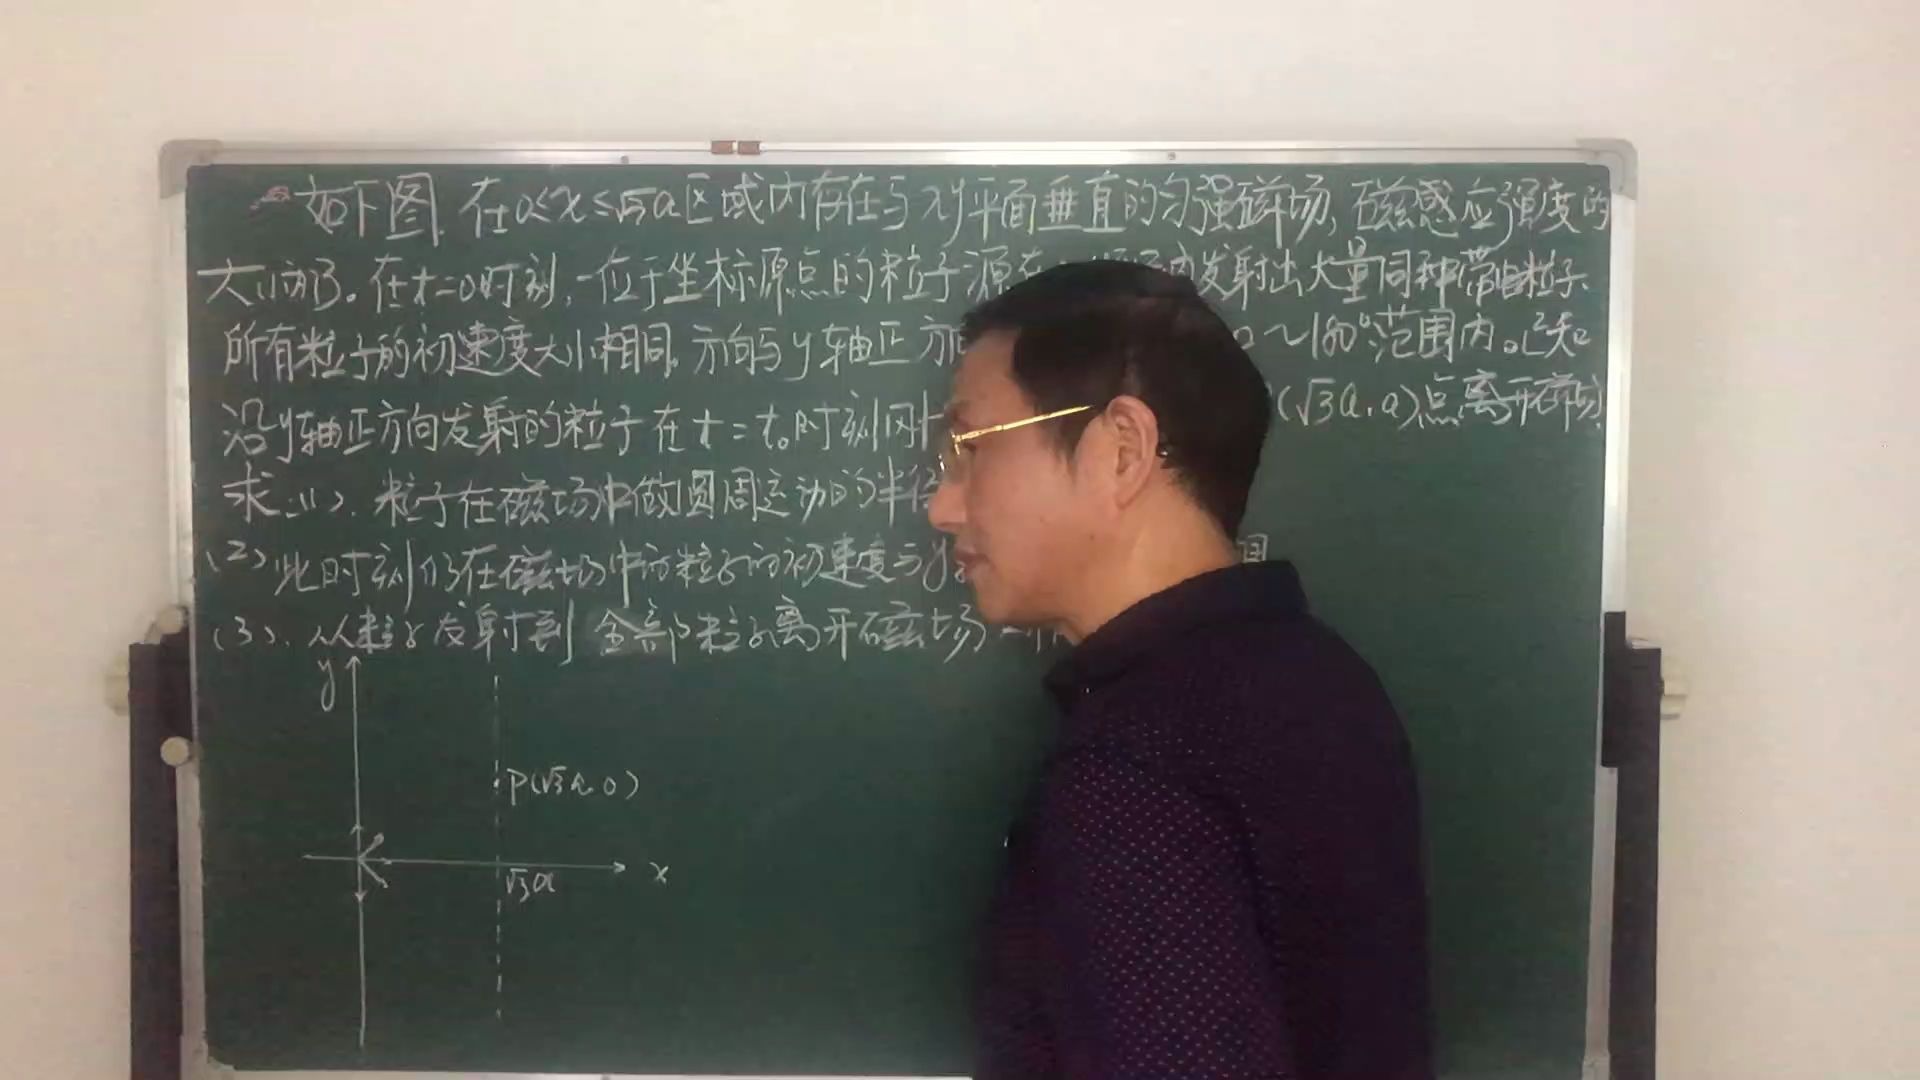 如下图.在0<x≤√3a区域内存在与xy平面垂直的匀强磁场,磁感应强度的
大小为B。在t=0时刻,一位于坐标原点的粒子源在 内发射出大量同种带电粒子、
所有粒子的初速度大小相同,方向与y轴正方 0~180°范围内。已知
沿y轴正方向发射的粒子在t=t₀时刻刚 (√3a,a)点离开磁场,
求:(1)、粒子在磁场中做圆周运动的半径
(2)此时刻仍在磁场中的粒子的初速度与y 围
(3)、从粒子发射到全部粒子离开磁场
y
P(√3a,0)
√3a
x